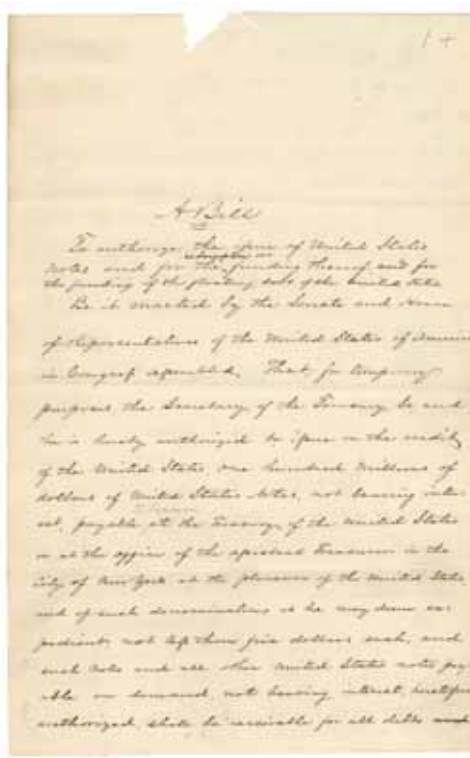 1 +
A Bill
To authorize the issue of United States
notes and for the funding thereof and for
the funding of the floating debt of the United States
Be it enacted by the Senate and House
of Representatives of the United States of America
in Congress assembled, That for temporary
purposes the Secretary of the Treasury be and
he is hereby authorized to issue on the credit
of the United States one hundred millions of
dollars of United States Notes, not bearing inter
est, payable at the Treasury of the United States
or at the office of the assistant Treasurer in the
city of New York at the pleasure of the United States
and of such denominations as he may deem ex
pedient, not less than five dollars each, and
such notes and all other United States notes pay
able on demand, not bearing interest, heretofore
authorized, shall be receivable for all debts and